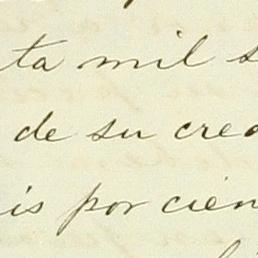 ta mil s
de su cred
is por cien